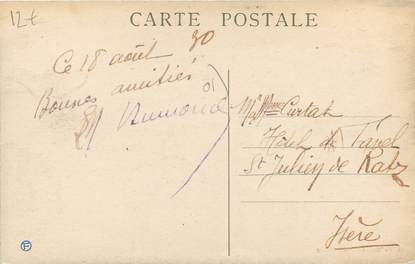 12€
CARTE POSTALE
Ce 18 août 30
Bonnes amitiés
Dumond
Mr Mme Curtat
Hôtel de Favel
St Julien de Ratz
Isère